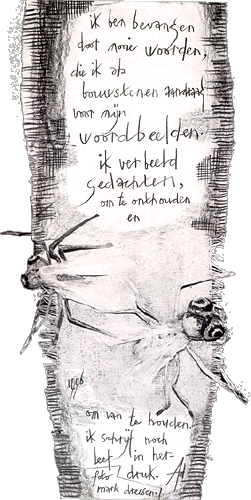 ik ben bevangen
door mooie woorden,
die ik als
bouwstenen aandraag
voor mijn
woordbeelden.
ik verbeeld
gedachten,
om te onthouden
en
1996
om van te houden.
ik schrijf noch
leef in het
foto / druk.
mark dressen